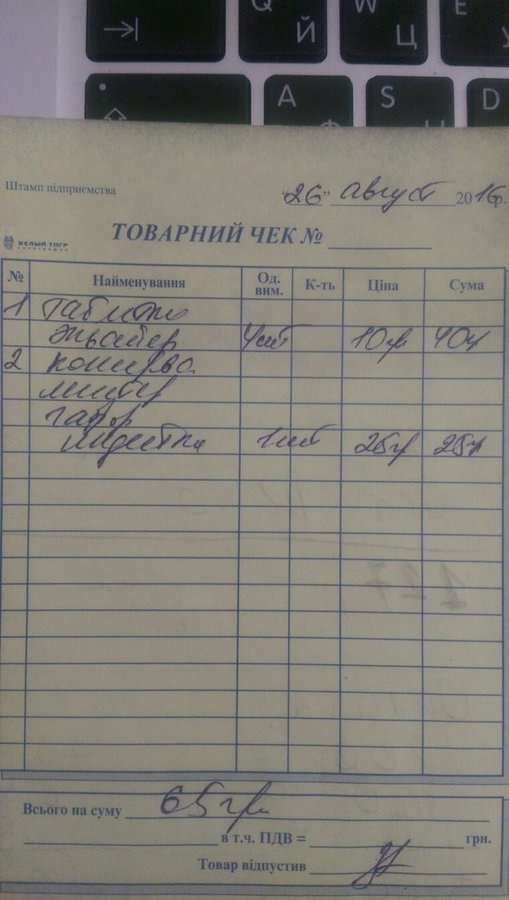 Q Й W Ц E
A Ф S D
Штамп підприємства
"26" август 2016р.
БЕЛЫЙ ТИГР
ТОВАРНИЙ ЧЕК №
№ Найменування Од. вим. К-ть Ціна Сума
1 таблетки
4шт 10гр 40гр
2 консерва
индейка 1шт 25гр 25гр
Всього на суму 65гр
в т.ч. ПДВ = грн.
Товар відпустив